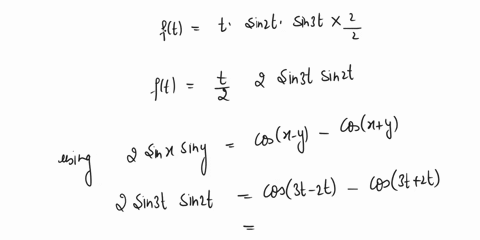 f(t) = t · sin2t · sin3t × 2/2
f(t) = t/2 2 sin3t sin2t
using 2 sinx siny = cos(x-y) - cos(x+y)
2 sin3t sin2t = cos(3t-2t) - cos(3t+2t)
=